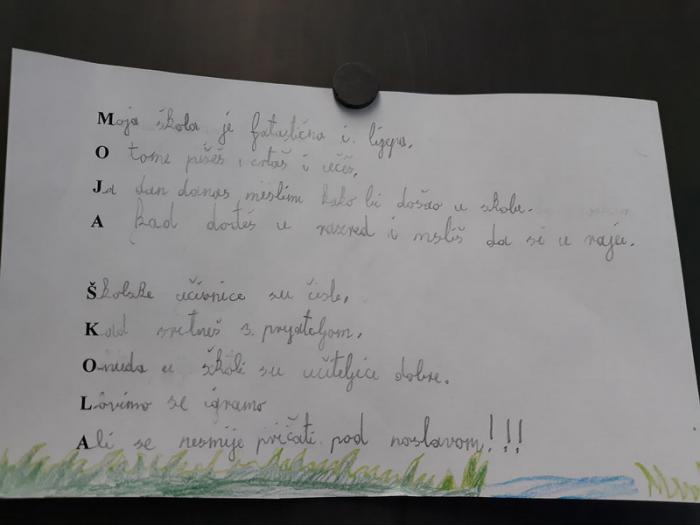 Moja škola je fatastična i ljepa.
O tome pišeš, crtaš i učiš.
Ja dan danas mislim kako bi došao u školu.
A kad dođeš u razred i msliš da si u raju.
Školske učionice su čiste.
Kad sretneš s. prijateljom.
Onuda u školi su učiteljice dobre.
Lovimo se igramo
Ali se nesmije pričati pod naslavom!!!